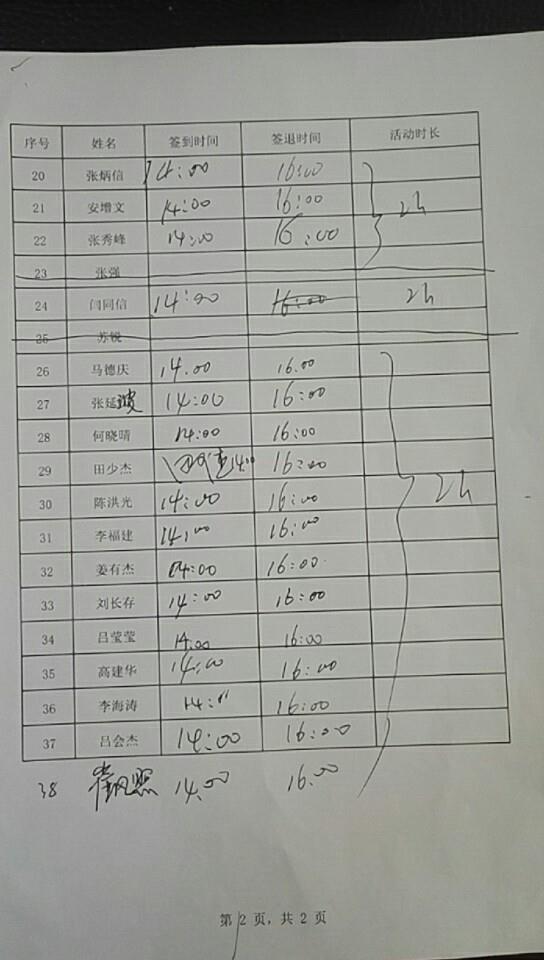 序号 姓名 签到时间 签退时间 活动时长
20 张炳信 14:00 16:00
21 安增文 14:00 16:00 2h
22 张秀峰 14:00 16:00
23 张强
24 闫同信 14:00 16:00 2h
25 苏锐
26 马德庆 14.00 16.00
27 张延波 14:00 16:00
28 何晓晴 14:00 16:00
29 田少杰 14:00 16:00
30 陈洪光 14:00 16:00 2h
31 李福建 14:00 16:00
32 姜有杰 14:00 16:00
33 刘长存 14:00 16:00
34 吕莹莹 14:00 16:00
35 高建华 14:00 16:00
36 李海涛 14:" 16:00
37 吕会杰 14:00 16:00
38 14.00 16.00
第 2 页，共 2 页